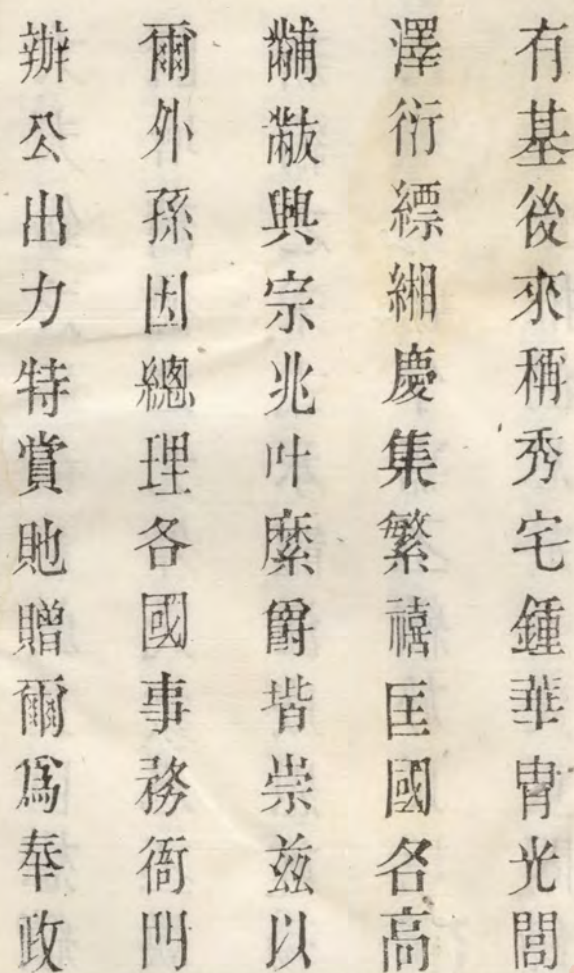 有基後來稱秀宅鍾華胄光閭
澤衍縹緗慶集繁禧匡國名高
黼黻興宗兆叶縻爵堦崇茲以
爾外孫因總理各國事務衙門
辦公出力特賞貤贈爾爲奉政